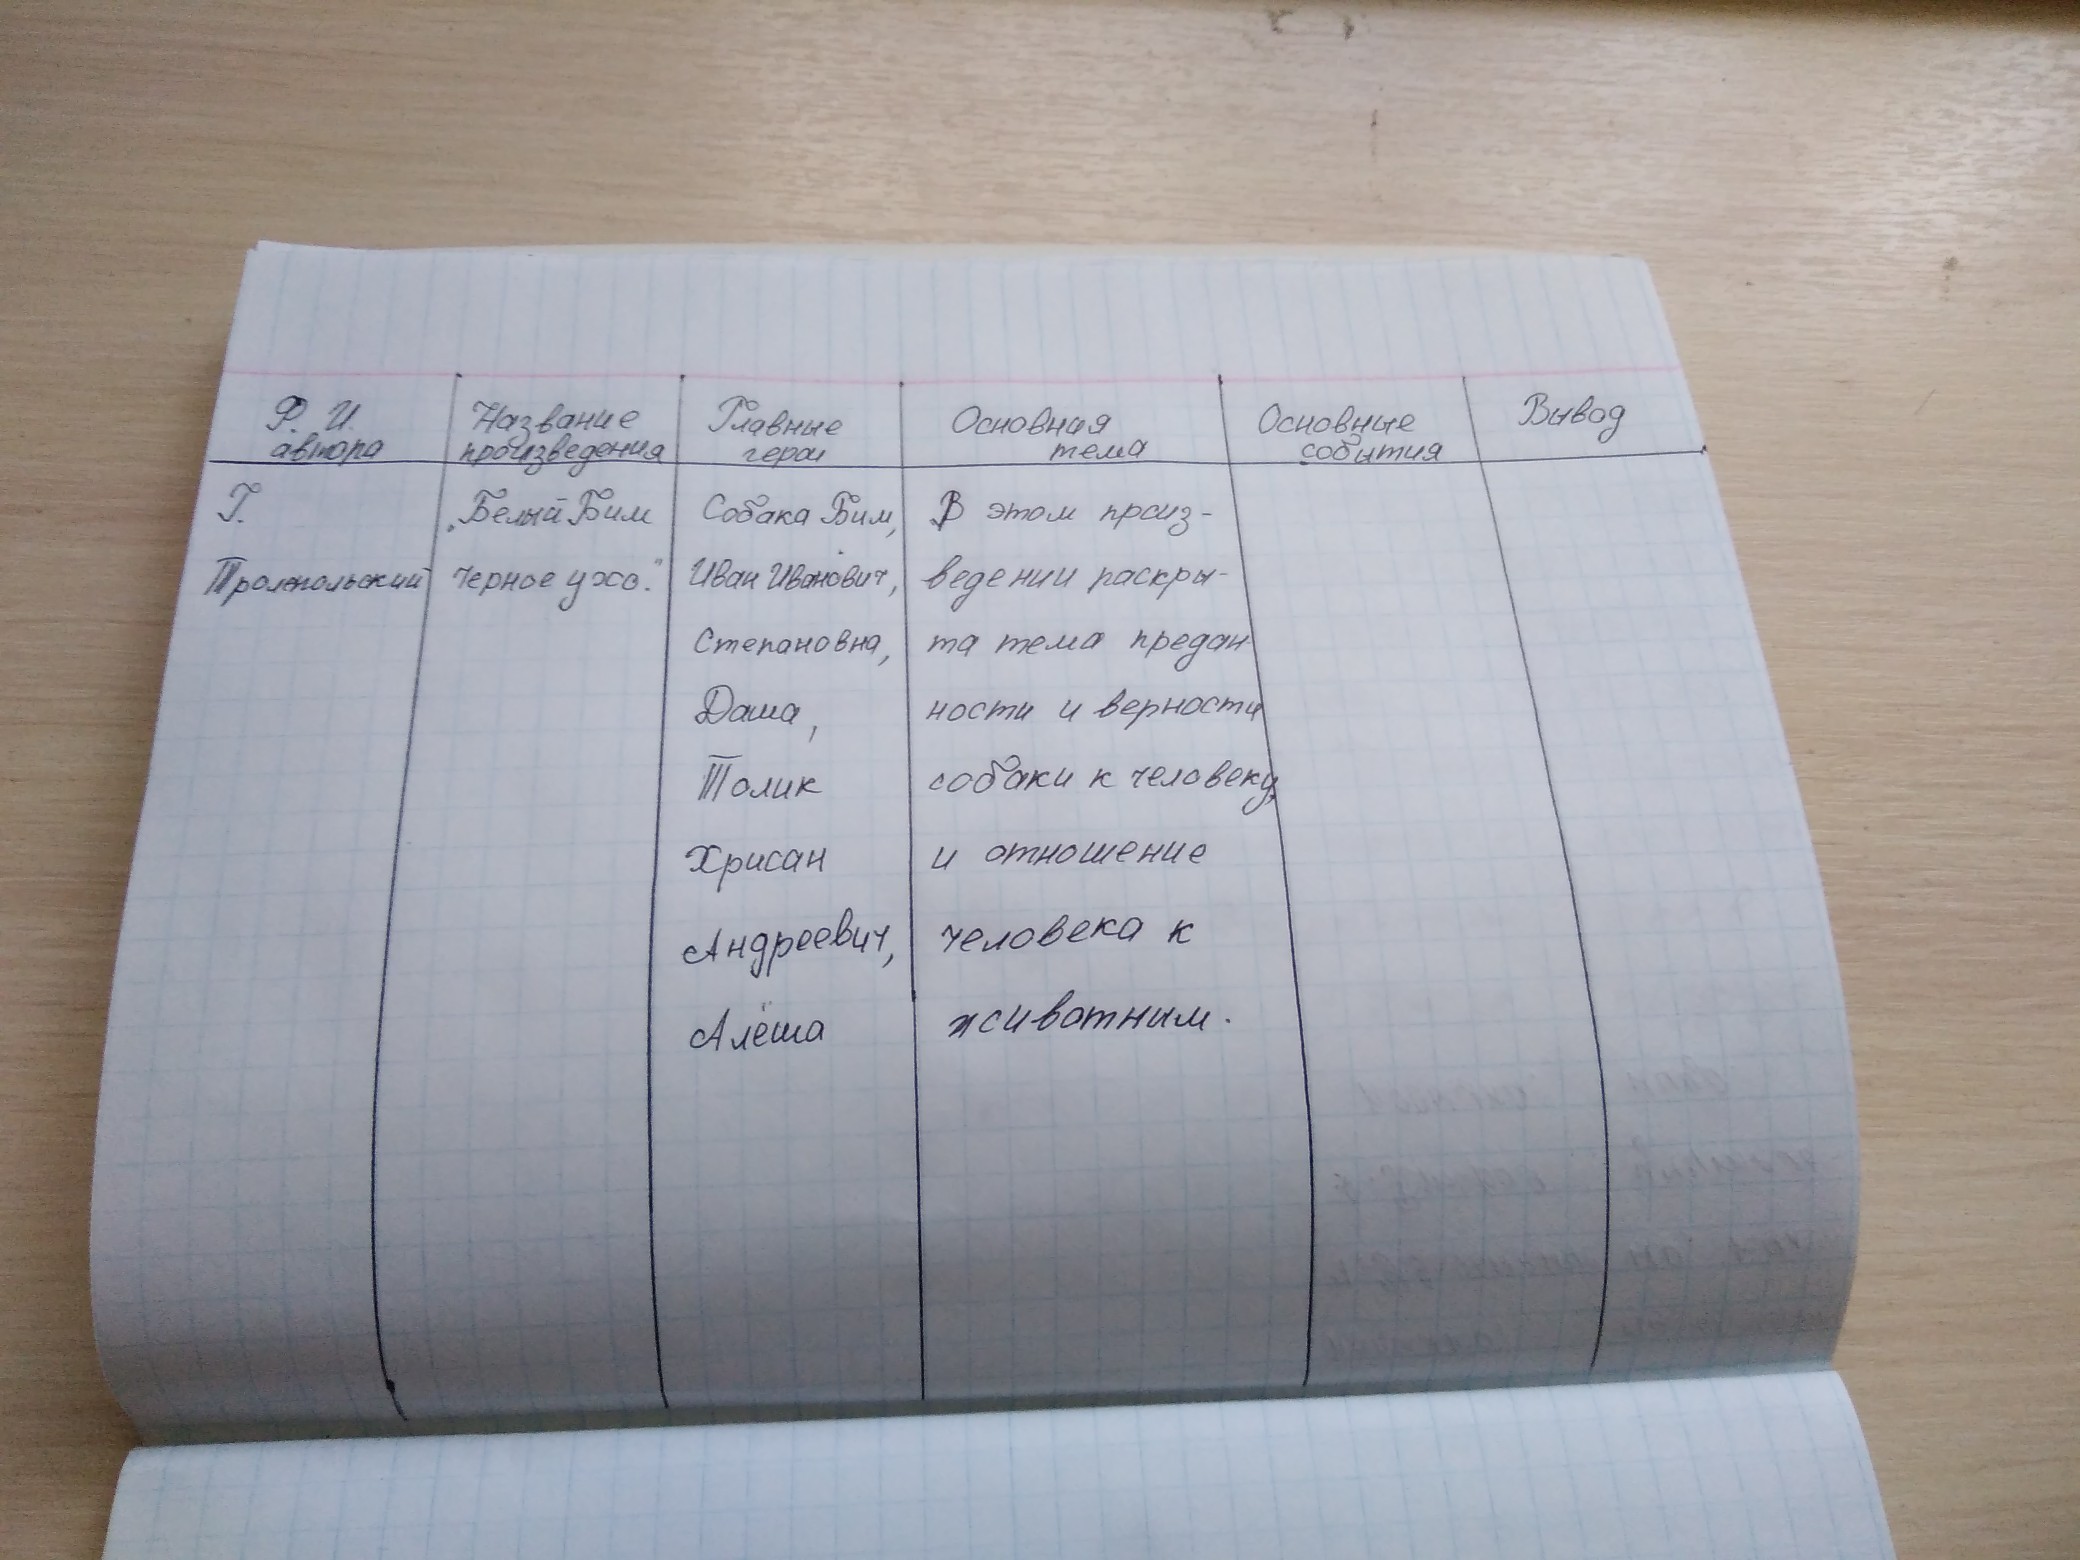 Ф. И. автора
Название произведения
Главные герои
Основная тема
Основные события
Вывод
Г.
Троепольский
„Белый Бим
Черное ухо."
Собака Бим,
Иван Иванович,
Степановна,
Даша,
Толик
Хрисан
Андреевич,
Алёша
В этом произ-
ведении раскры-
та тема предан-
ности и верности
собаки к человеку,
и отношение
человека к
животным.